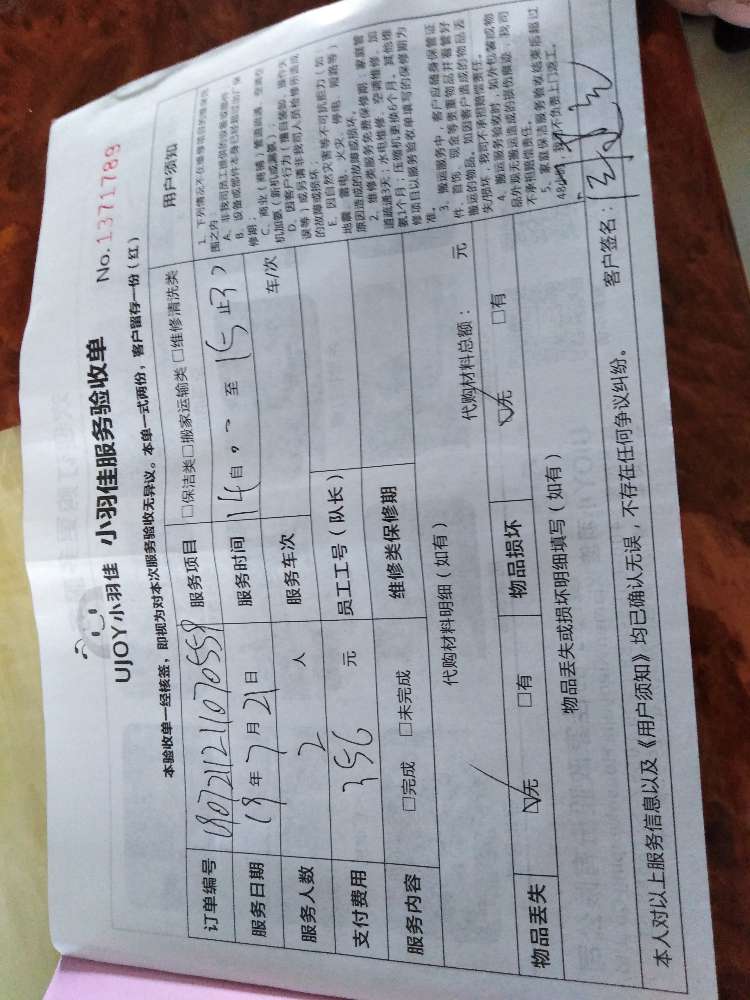 UJOY小羽佳 小羽佳服务验收单
No.1371789
本验收单一经核签，即视为对本次服务验收无异议。本单一式两份，客户留存一份（红）
订单编号 180721121070559 服务项目 □保洁类□搬家运输类 □维修清洗类
服务日期 18年7月21日 服务时间 14 自 至 15
服务人数 2 人 服务车次 车/次
支付费用 356 元 员工工号（队长）
服务内容 □完成 □未完成 维修类保修期
代购材料明细（如有） 代购材料总额： 元
物品丢失 ☑无 □有 物品损坏 ☑无 □有
物品丢失或损坏明细填写（如有）
用户须知
1. 下列情况不在维修项目的维保范
围之内
A、非我司员工提供的设备或部件
B、设备或部件本身已经超过厂保
修期；
C、商业（商铺）管道疏通，空调
机加氨（新机或漏氨）
D、因客户行为（擅自装卸、操作失
误等）或另请非我司人员检修所造成
的故障或损坏；
E、因自然灾害等不可抗原力（如：
地震、雷电、火灾、停电、短路等）
原因造成的故障或损坏。
2、维修类服务免费保修期：家庭管
道疏通3天；水电维修、空调维修、加
氨1个月；压缩机更换6个月。其他维
修项目以服务验收单填写的保修期为
准。
3、搬运服务中，客户应随身保管证
件、首饰、现金等贵重物品并看管好
搬运的物品。如因客户造成的物品丢
失/损坏，我司不承担赔偿责任。
4、搬运服务验收时，如外包装或物
品外观无搬运造成的损伤痕迹，我司
不承担赔偿责任。
5、家庭保洁服务验收结束后超过
48小时，我司不负责上门返工。
本人对以上服务信息以及《用户须知》均已确认无误，不存在任何争议纠纷。 客户签名：